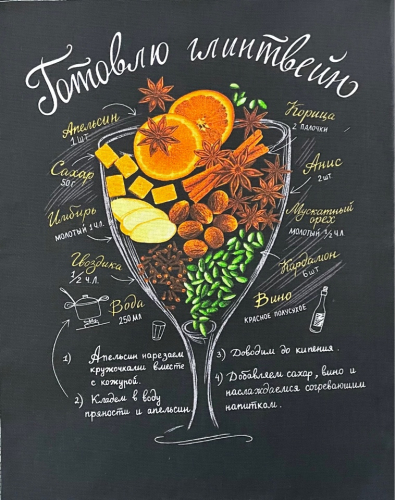 Готовлю глинтвейн
Апельсин
1 шт.
Сахар
50 г
Имбирь
молотый 1 ч.л.
Гвоздика
1/2 ч.л.
Вода
250 мл
Корица
2 палочки
Анис
2 шт.
Мускатный
орех
молотый 1/2 ч.л.
Кардамон
6 шт
Вино
красное полусухое
1) Апельсин нарезаем
кружочками вместе
с кожурой.
2) Кладем в воду
пряности и апельсин.
3) Доводим до кипения.
4) Добавляем сахар, вино и
наслаждаемся согревающим
напитком.